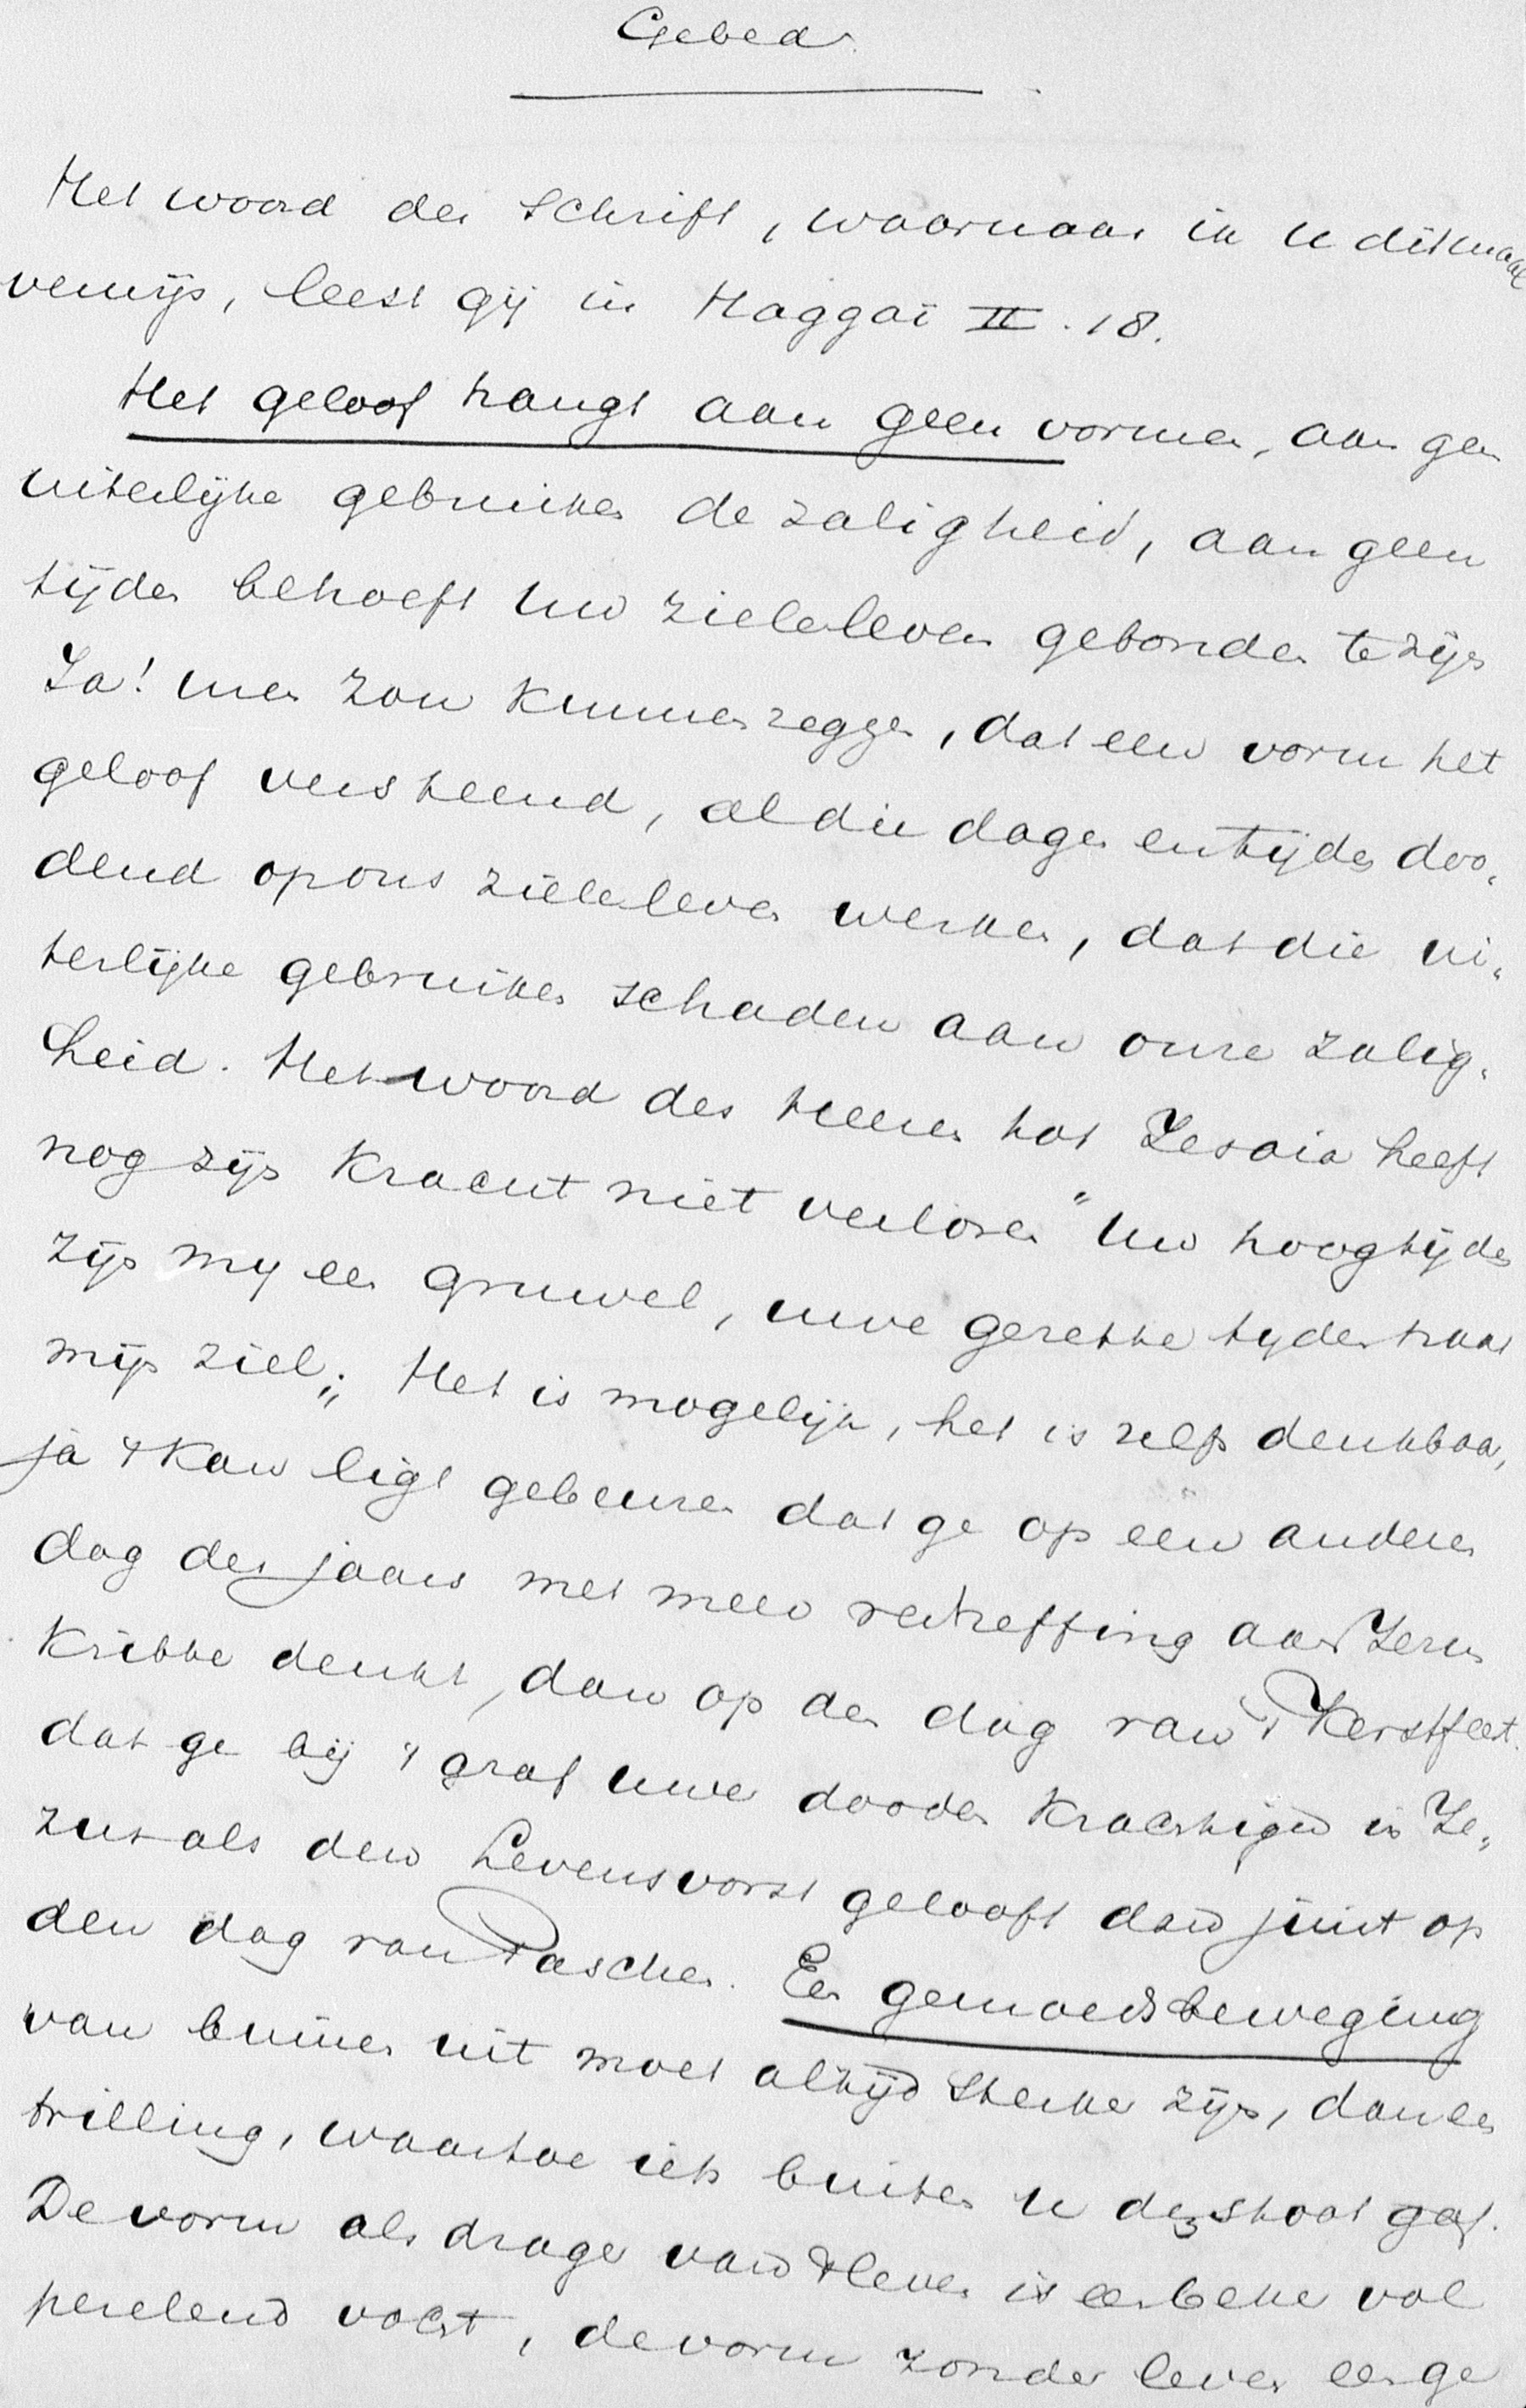 Gebed.
Het woord der Schrift, waarnaar ik u ditmaal
verwijs, leest gij in Haggaï II. 18.
Het geloof hangt aan geen vormen, aan geen
uiterlijke gebruiken de zaligheid, aan geen
tijden behoeft Uw zieleleven gebonden te zijn
Ja! men zou kunnen zeggen, dat een vorm het
geloof versteend, al die dagen en tijden doo„
dend op ons zieleleven werken, dat die ui„
terlijke gebruiken schaden aan onze zalig„
heid. Het woord des Heeren tot Jesaia heeft
nog zijn kracht niet verloren "Uw hoogtijden
zijn mij een gruwel, uwe gezette tyden haat
mijn ziel„; Het is mogelijk, het is zelfs denkbaar,
ja 't kan ligt gebeuren dat ge op een anderen
dag des jaars met meer vertreffing aan Jezus
kribbe denkt, dan op den dag van 't Kerstfeest.
dat ge bij 't graf uwer dooden krachtiger in Je„
zus als den Levensvorst gelooft dan juist op
den dag van Paschen. Een gemoedsbeweging
van binnen uit moet altijd sterker zijn, dan een
trilling, waartoe iets buiten u den stoot gaf.
De vorm als drager van 't leven is een beker vol
perelend vocht, de vorm zonder leven een ge